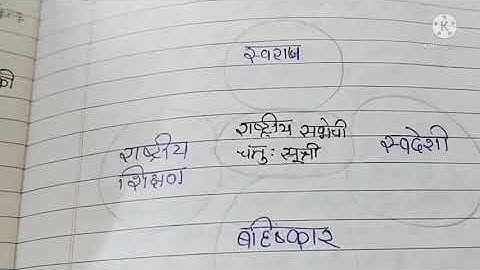 स्वराज
राष्ट्रीय सभेची
चतु: सूत्री
राष्ट्रीय
शिक्षण
स्वदेशी
बहिष्कार